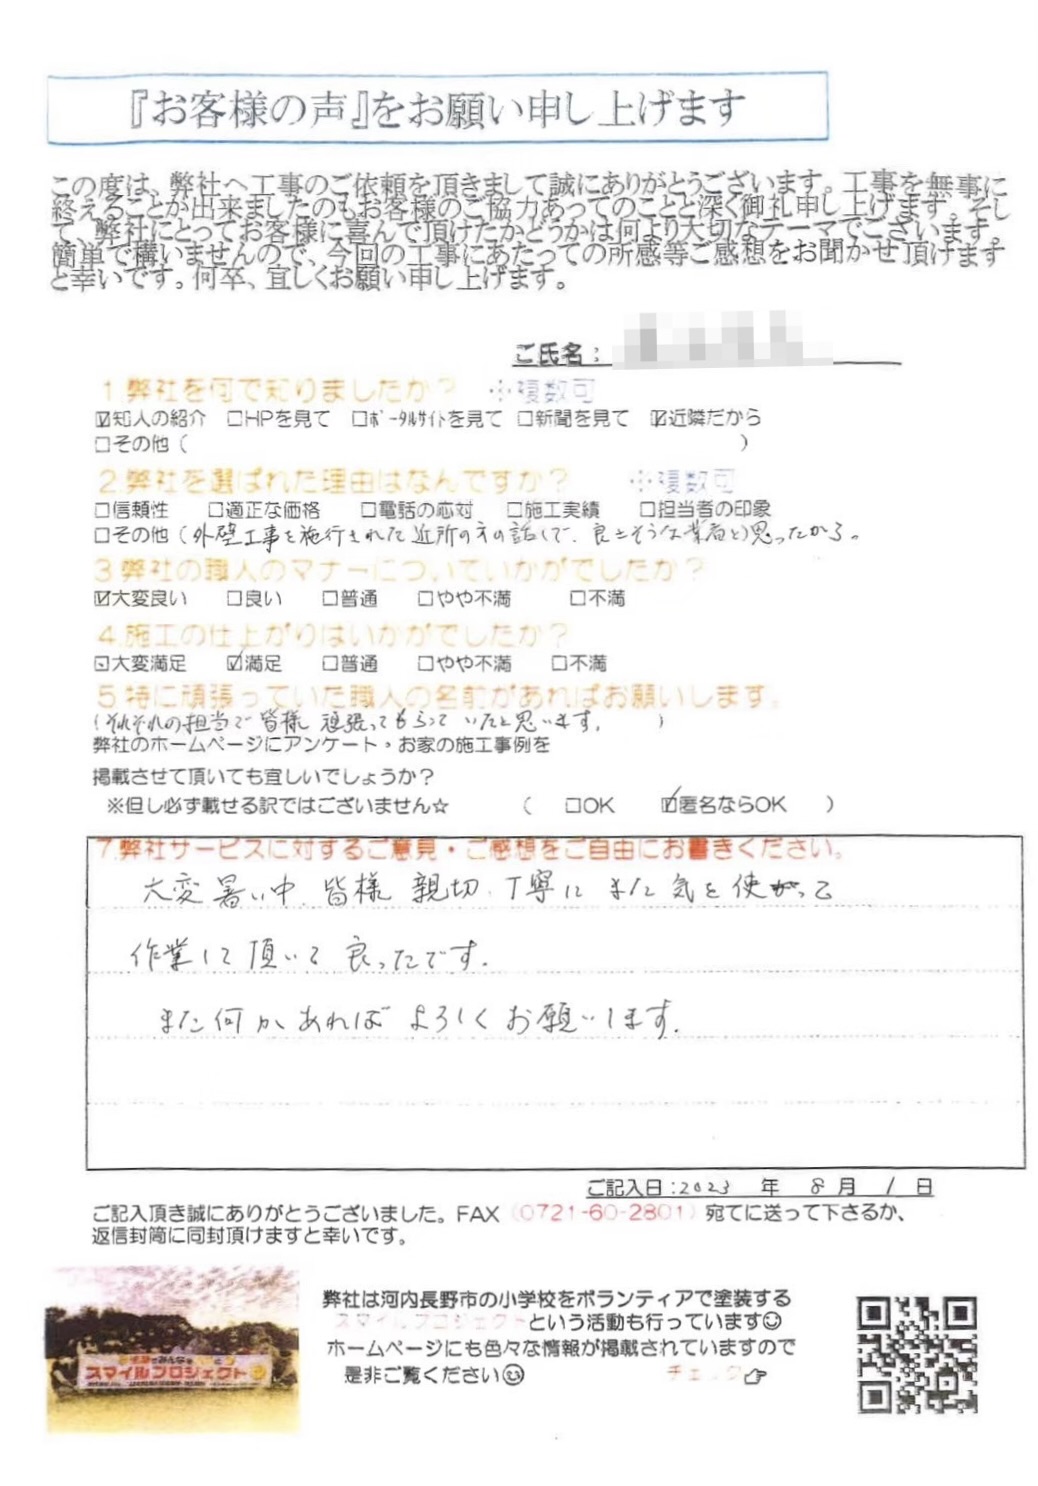 『お客様の声』をお願い申し上げます
この度は、弊社へ工事のご依頼を頂きまして誠にありがとうございます。工事を無事に
終えることが出来ましたのもお客様のご協力あってのことと深く御礼申し上げます。そし
て、弊社にとってお客様に喜んで頂けたかどうかは何より大切なテーマでございます。
簡単で構いませんので、今回の工事にあたっての所感等ご感想をお聞かせ頂けます
と幸いです。何卒、宜しくお願い申し上げます。
ご氏名：
1.弊社を何で知りましたか？ ※複数可
☑知人の紹介 □HPを見て □ﾎﾟｰﾀﾙｻｲﾄを見て □新聞を見て ☑近隣だから
□その他（ ）
2.弊社を選ばれた理由はなんですか？ ※複数可
□信頼性 □適正な価格 □電話の応対 □施工実績 □担当者の印象
□その他（外壁工事を施行された近所の方の話しで、良さそうな業者と）思ったから。
3.弊社の職人のマナーについていかがでしたか？
☑大変良い □良い □普通 □やや不満 □不満
4.施工の仕上がりはいかがでしたか？
□大変満足 ☑満足 □普通 □やや不満 □不満
5.特に頑張っていた職人の名前があればお願いします。
（それぞれの担当で皆様 頑張ってもらっていたと思います。 ）
弊社のホームページにアンケート・お家の施工事例を
掲載させて頂いても宜しいでしょうか？
※但し必ず載せる訳ではございません☆ （ □OK ☑匿名ならOK ）
7.弊社サービスに対するご意見・ご感想をご自由にお書きください。
大変暑い中、皆様 親切、丁寧に また気を使って
作業して頂いて 良ったです。
また何かあれば よろしくお願いします。
ご記入日：2023 年 8月 1日
ご記入頂き誠にありがとうございました。FAX（0721-60-2801）宛てに送って下さるか、
返信封筒に同封頂けますと幸いです。
スマイルプロジェクト
弊社は河内長野市の小学校をボランティアで塗装する
スマイルプロジェクトという活動も行っています☺
ホームページにも色々な情報が掲載されていますので
是非ご覧ください☺ チェック☞